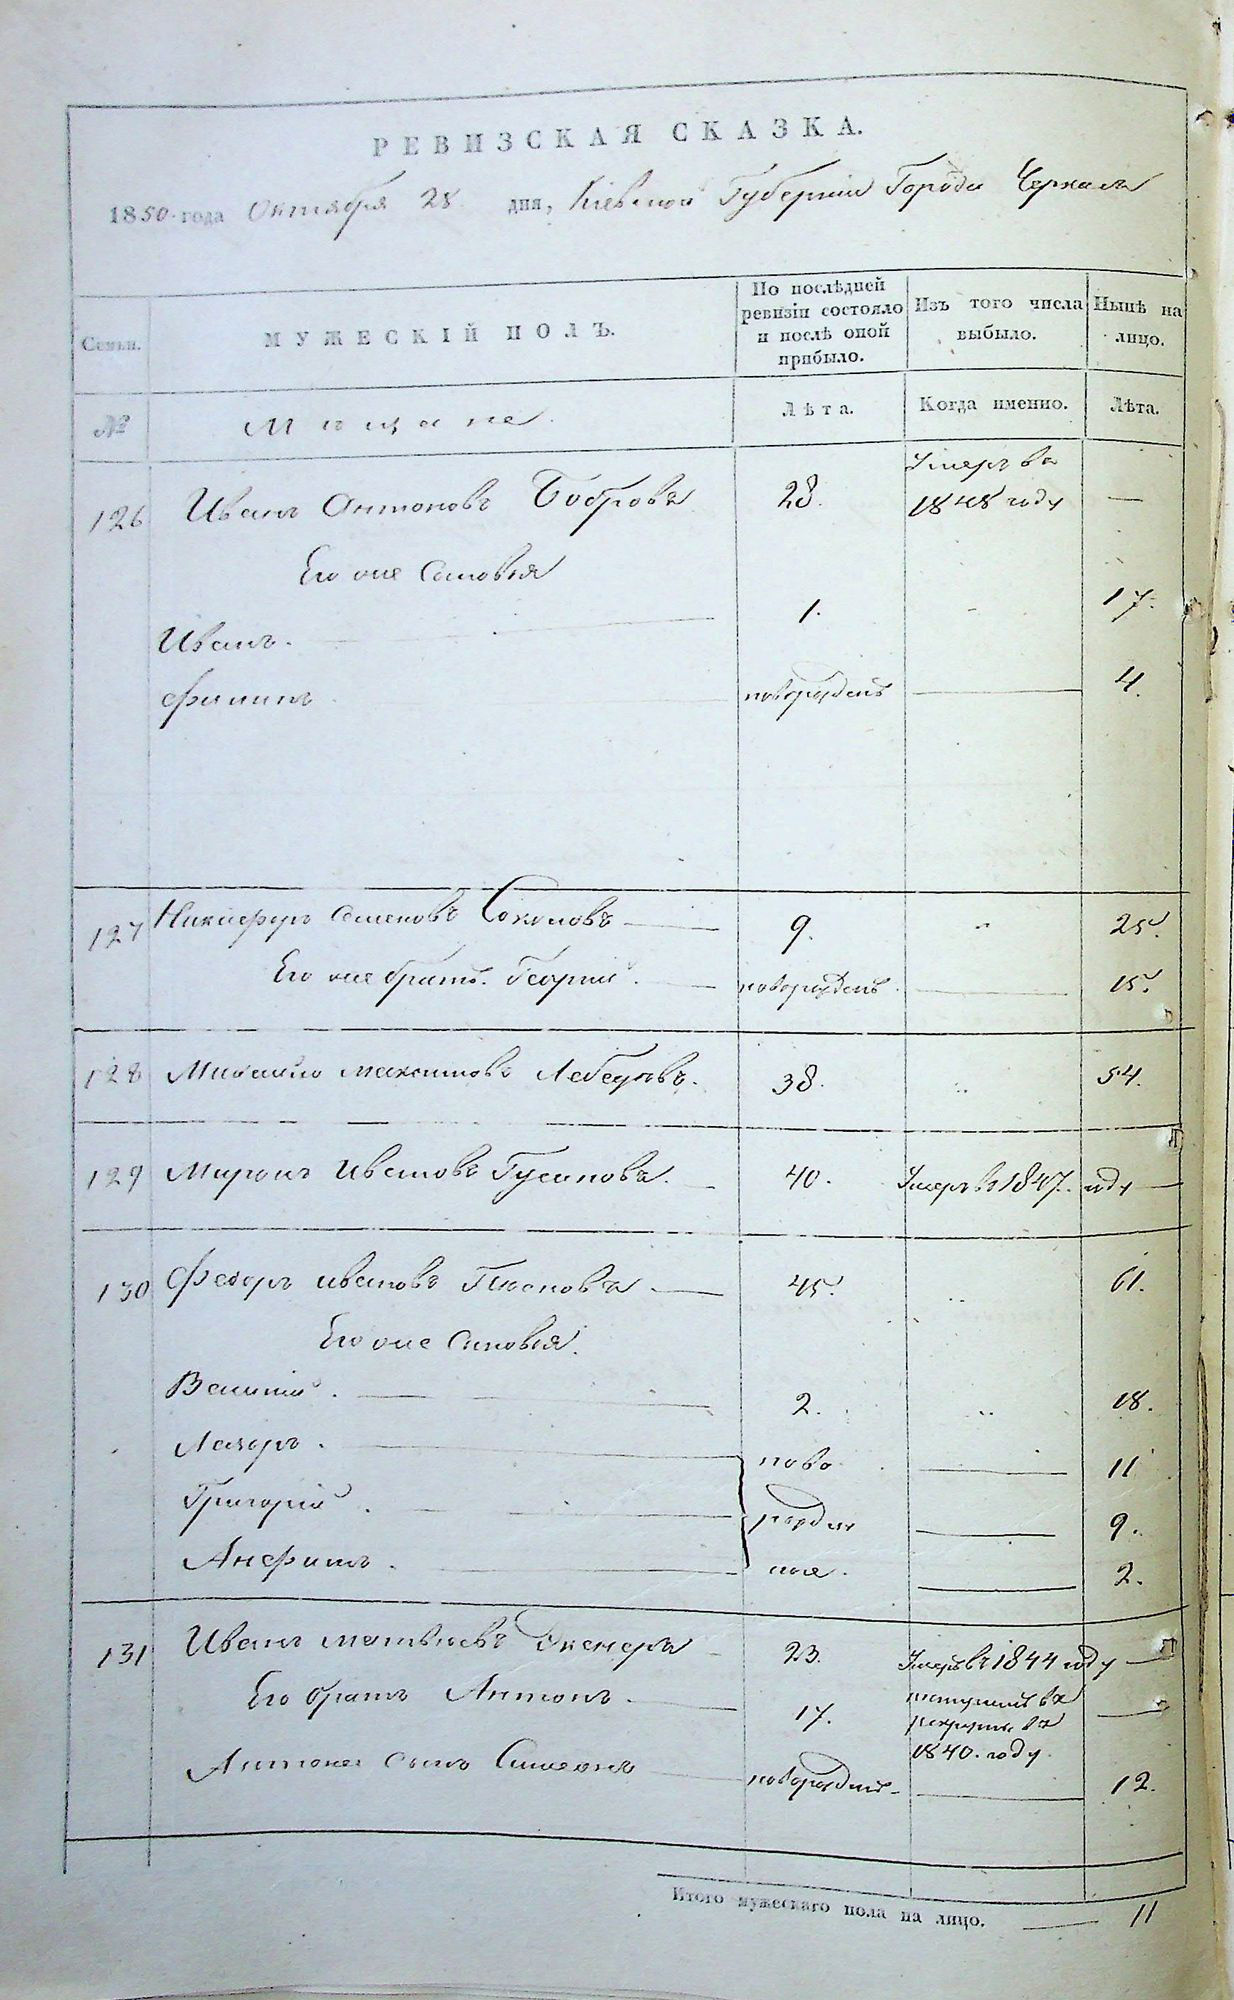 РЕВИЗСКАЯ СКАЗКА.
1850 года Октября 28 дня, Кіевской Губерніи Города Черкасъ
Семьи. МУЖЕСКІЙ ПОЛЪ. По послѣдней ревизіи состояло и послѣ оной прибыло. Изъ того числа выбыло. Нынѣ на лицо.
№ Мещане Лѣта. Когда именно. Лѣта.
126 Иванъ Антоновъ Бобровъ 28. Умеръ въ 1848 году —
Его же Сыновья
Иванъ. 1. 17.
Филипъ новорожденъ 4.
127 Никифоръ Семеновъ Соколовъ 9. 25.
Его же братъ. Георгий. новорожденъ 15.
128 Михайло Максимовъ Лебедовъ. 38. 54.
129 Миронъ Ивановъ Гусаковъ. 40. Умеръ въ 1847. году —
130 Федоръ Ивановъ 45. 61.
Его же Сыновья.
Василий. 2. 18.
Лазоръ. ново 11
Григорий. рожден 9.
Анфимъ. ные. 2.
131 Иванъ Матвѣевъ 23. Умеръ въ 1844 году —
Его братъ Антонъ. 17. поступилъ въ рекруты въ 1840. году. —
Антона сынъ Симеонъ новорожденъ. 12.
Итого мужескаго пола на лицо. — 11